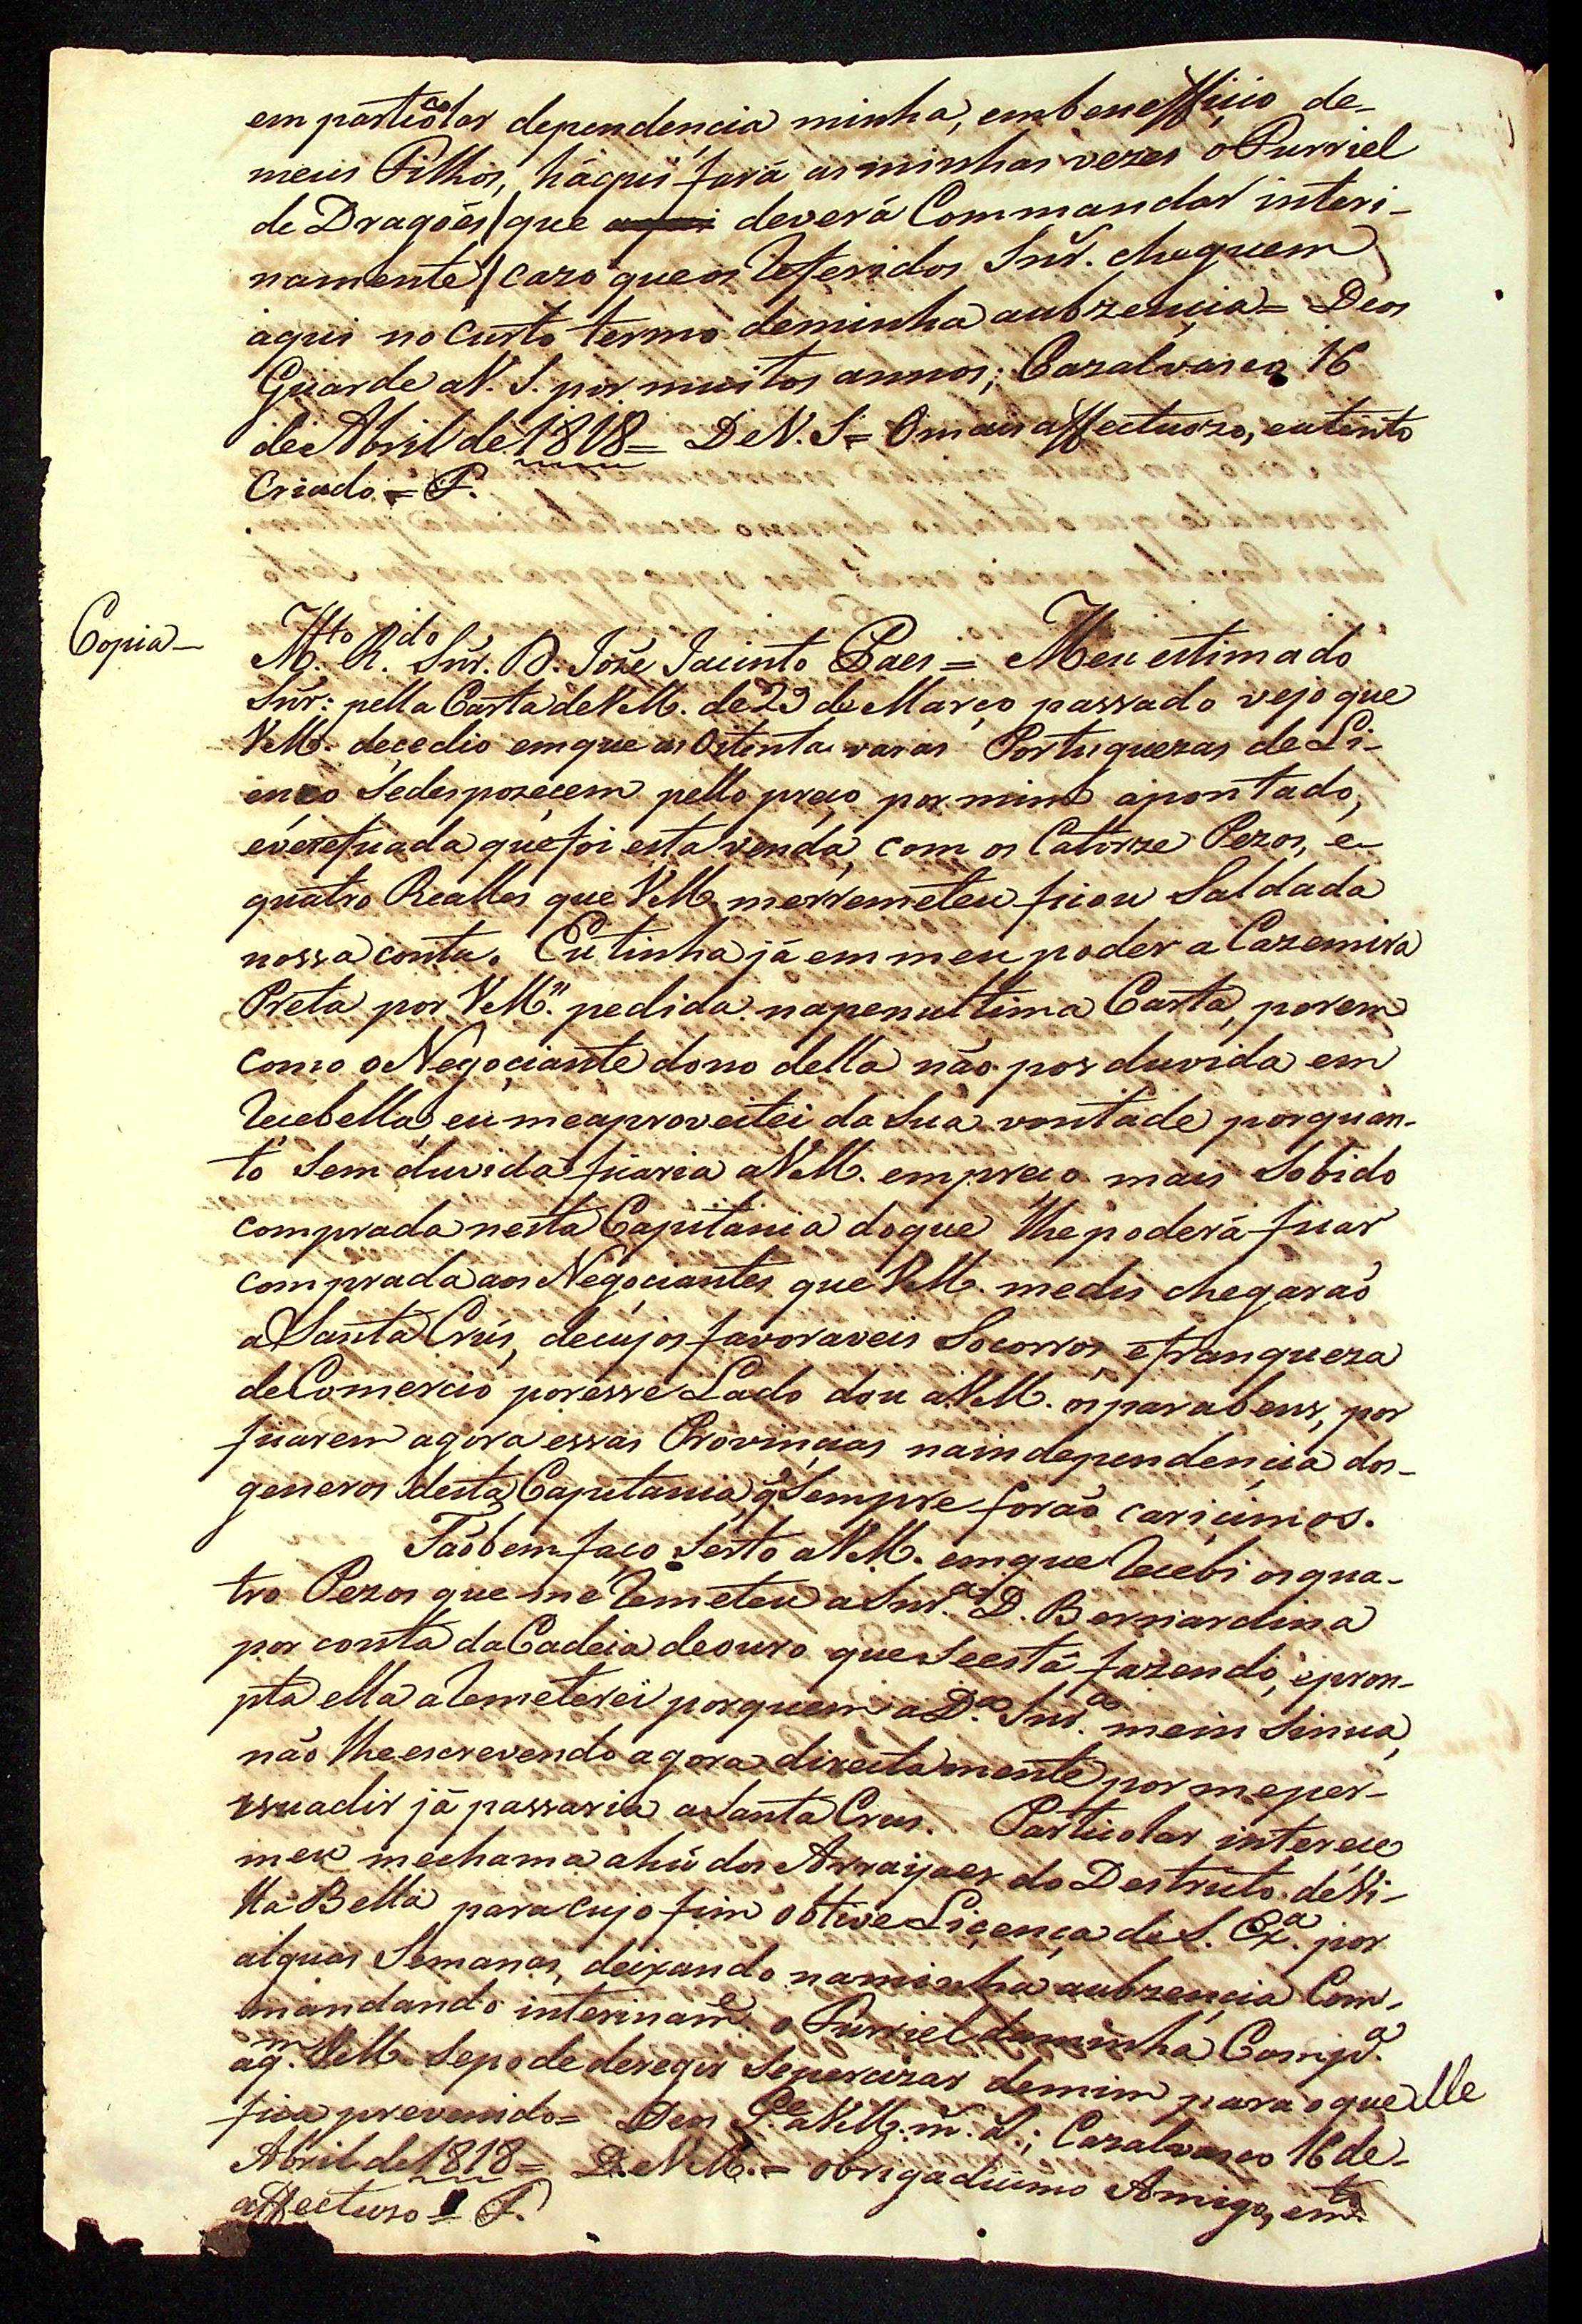 em particolar dependencia minha, em beneffiçio de-
meus Filhos, háqui fará as minhas vezes o Furriel
de Dragoẽs (que aqui deverá Commandar interi-
namente) cazo que os Referidos Snr̃. cheguem
aqui no curto termo de minha aubzençia = Deos
Guarde a V. S. por muitos annos; Cazalvasco 16
de Abril de 1818 = De V. S. = O mais affectuozo, eatento
Criado = P.
Copia-
M.to R.do Snr̃. D. Joze Jacinto Paes = Meu estimado
Snr̃: pella Carta de VM. de 29 de Março passado vejo que
VM. deçedio em que as Oitenta varas Portuguezas de Li-
enço Sedespozecem pello preço por mim apontado,
everefuada que foi esta venda, com os Catorze Pezos, e-
quatro Realles que VM. merremeteu ficou Saldada
nossa conta. Eu tinha já em meu poder a Cazemira
Preta por VM. pedida na penultima Carta, porem
como o Negoçiante dono della não pos duvida em
Recebella, eu meaproveitei da Sua vontade porquan-
to Sem duvida ficaria a VM. empreço mais Sobido
comprada nesta Capitania doque lhe poderá ficar
comprada aos Negociantes que VM. medis chegarão
a Santa Crús, decujos favoraveis Socorros, efranqueza
de Comercio poresse Lado dou a VM. os parabens, por
ficarem agora essas Provinçias naindependençia dos-
generos desta Capitania, q̃ Sempre forão cariçimos.
Tãobem faço Serto a VM. emque Recebi os qua-
tro Pezos que me Remeteu a Snr.ª D. Bernardina
por conta da Cadeia deouro que Seestá fazendo, epron-
pta ella a Remeterei porquem a D.ª Snr.ª mein Sinua,
não lhe escrevendo agora directamente por meper-
suadir já passaria a Santa Crus. Particolar interece
meu mechama ahú dos Arraijaes do Destricto de Vi-
lla Bella para cujo fim obtive Liçença de S. Ex.ª por
alguas Semanas, deixando naminha aubzençia Com-
mandando interinam.e o Furriel daminha Comp.ª
aq.m VM. Sepode deregir Seperçizar demim para oque elle
fica prevenido = Deos G.e a VM. m. a.; Cazalvasco 16 de-
Abril de 1818 = D. VM. = obrigadiçimo Amigo, em.to
affectuozo = P.